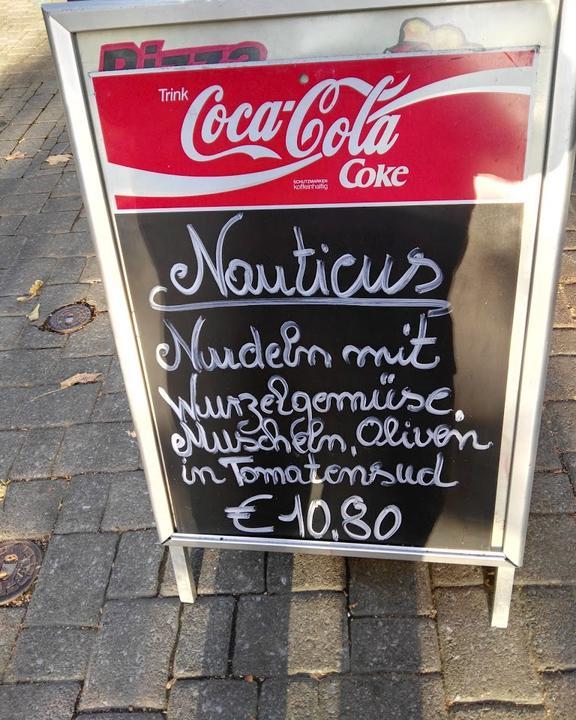 Pizza
Trink
Coca-Cola
Coke
SCHUTZMARKEN
koffeinhaltig
Nauticus
Nudeln mit
Wurzelgemüse,
Muscheln, Oliven
in Tomatensud
€ 10,80